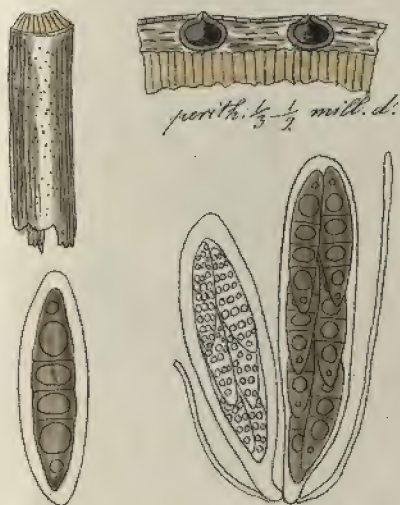 perith: 1/3 - 1/2 mill. d: